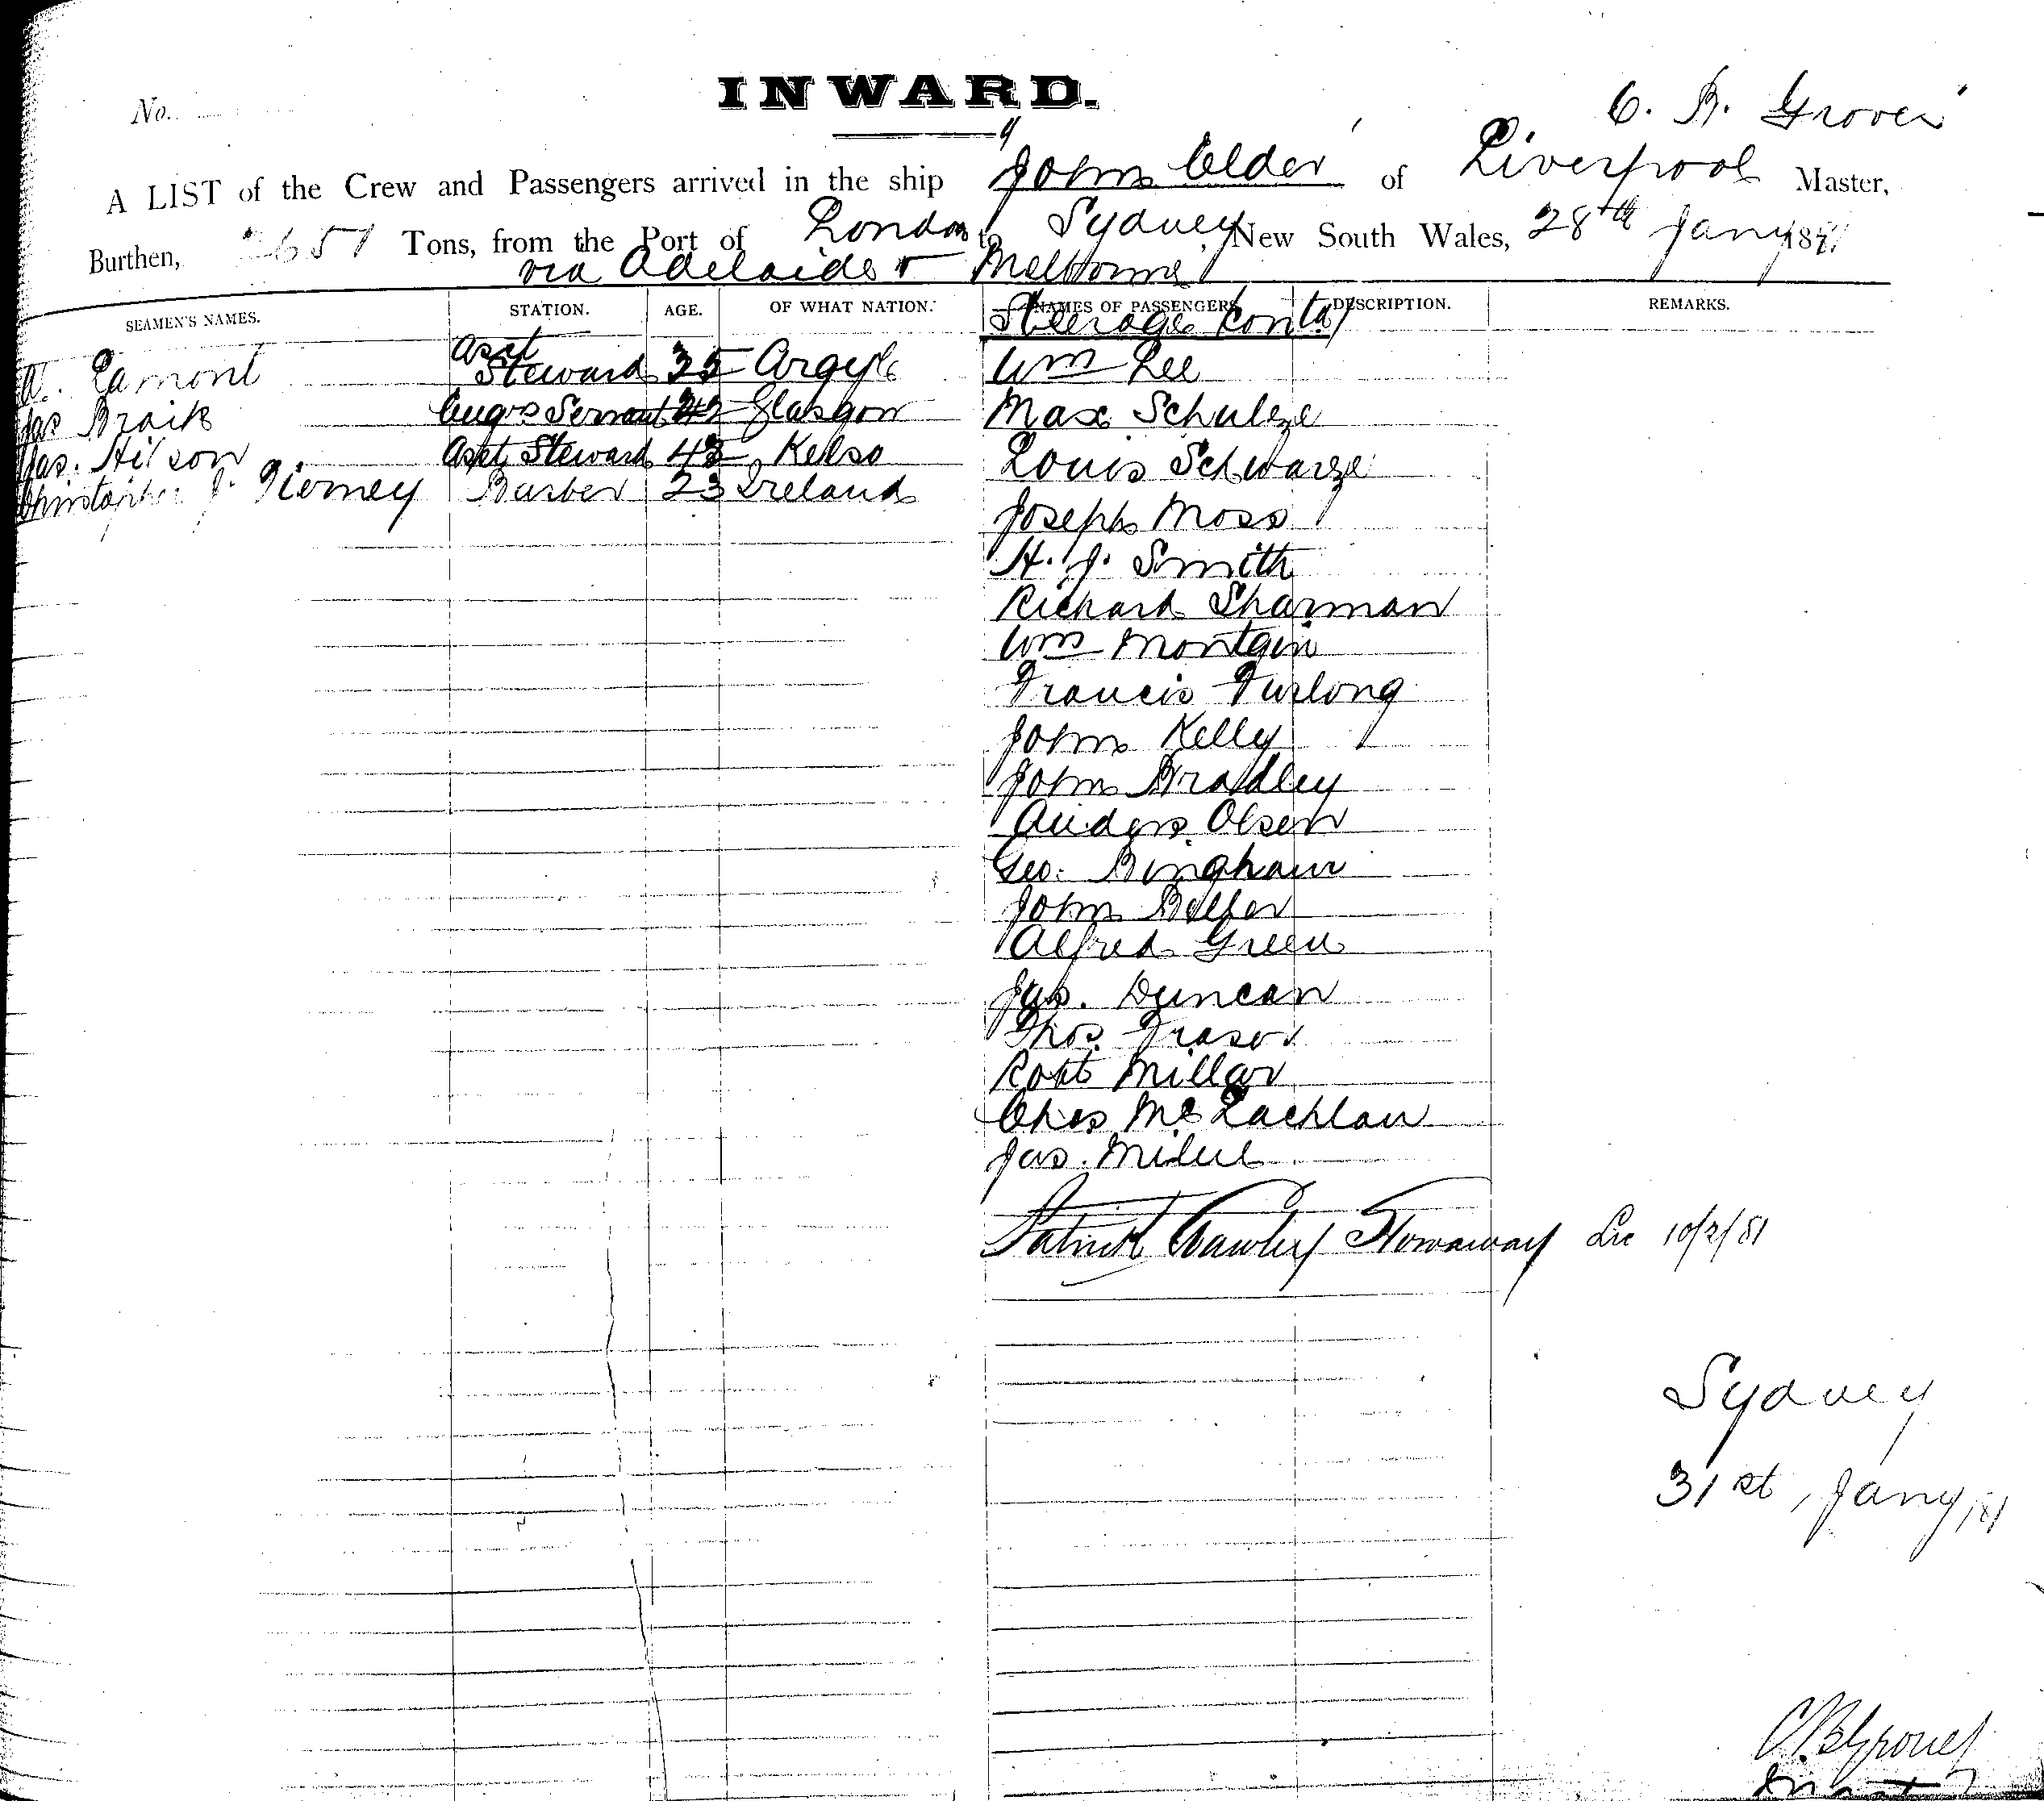 INWARD.
No.
C. B. Grover
A LIST of the Crew and Passengers arrived in the ship John Elder of Liverpool Master,
Burthen, 2651 Tons, from the Port of London to Sydney, New South Wales, 28th Jany 1881
via Adelaide & Melbourne
SEAMEN'S NAMES. STATION. AGE. OF WHAT NATION. NAMES OF PASSENGERS. DESCRIPTION. REMARKS.
Steerage Contd
Lamont Asst Steward 35 Argyle Wm Lee
Jas Braik Engrs Servant 42 Glasgow Max Schulze
Jas. Hilson Asst Steward 43 Kelso Louis Schwarze
Christopher J. Tierney Barber 23 Ireland
Joseph Moss
H. J. Smith
Richard Sharman
Wm Montgin
Francis Furlong
John Kelly
John Bradley
Anders Olsen
Geo. Bingham
John
Alfred Green
Jas. Duncan
Thos. Fraser
Robt Millar
Chas McLachlan
Jas. Milne
Patrick Crawley Stowaway 10/2/81
Sydney
31st, Jany, 81
C B Grover